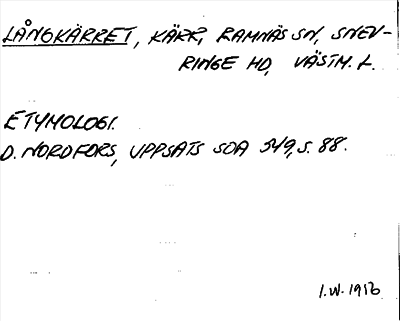 LÅNGKÄRRET, KÄRR, RAMNÄS SN, SNEV-
RINGE HD, VÄSTM. L.
ETYMOLOGI.
D. NORDFORS, UPPSATS SOA 549, S. 88.
I.W. 1976